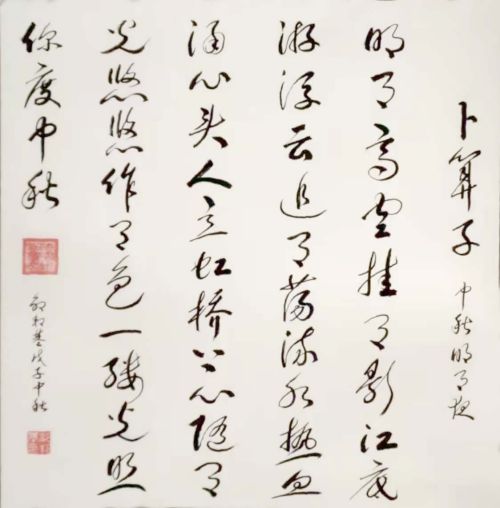 卜算子 中秋明月夜
明月高空挂月影江底
游浮云追月荡流水热血
涌心头人立虹桥上心随月
光悠悠作月色一缕光照
你度中秋
戊子中秋